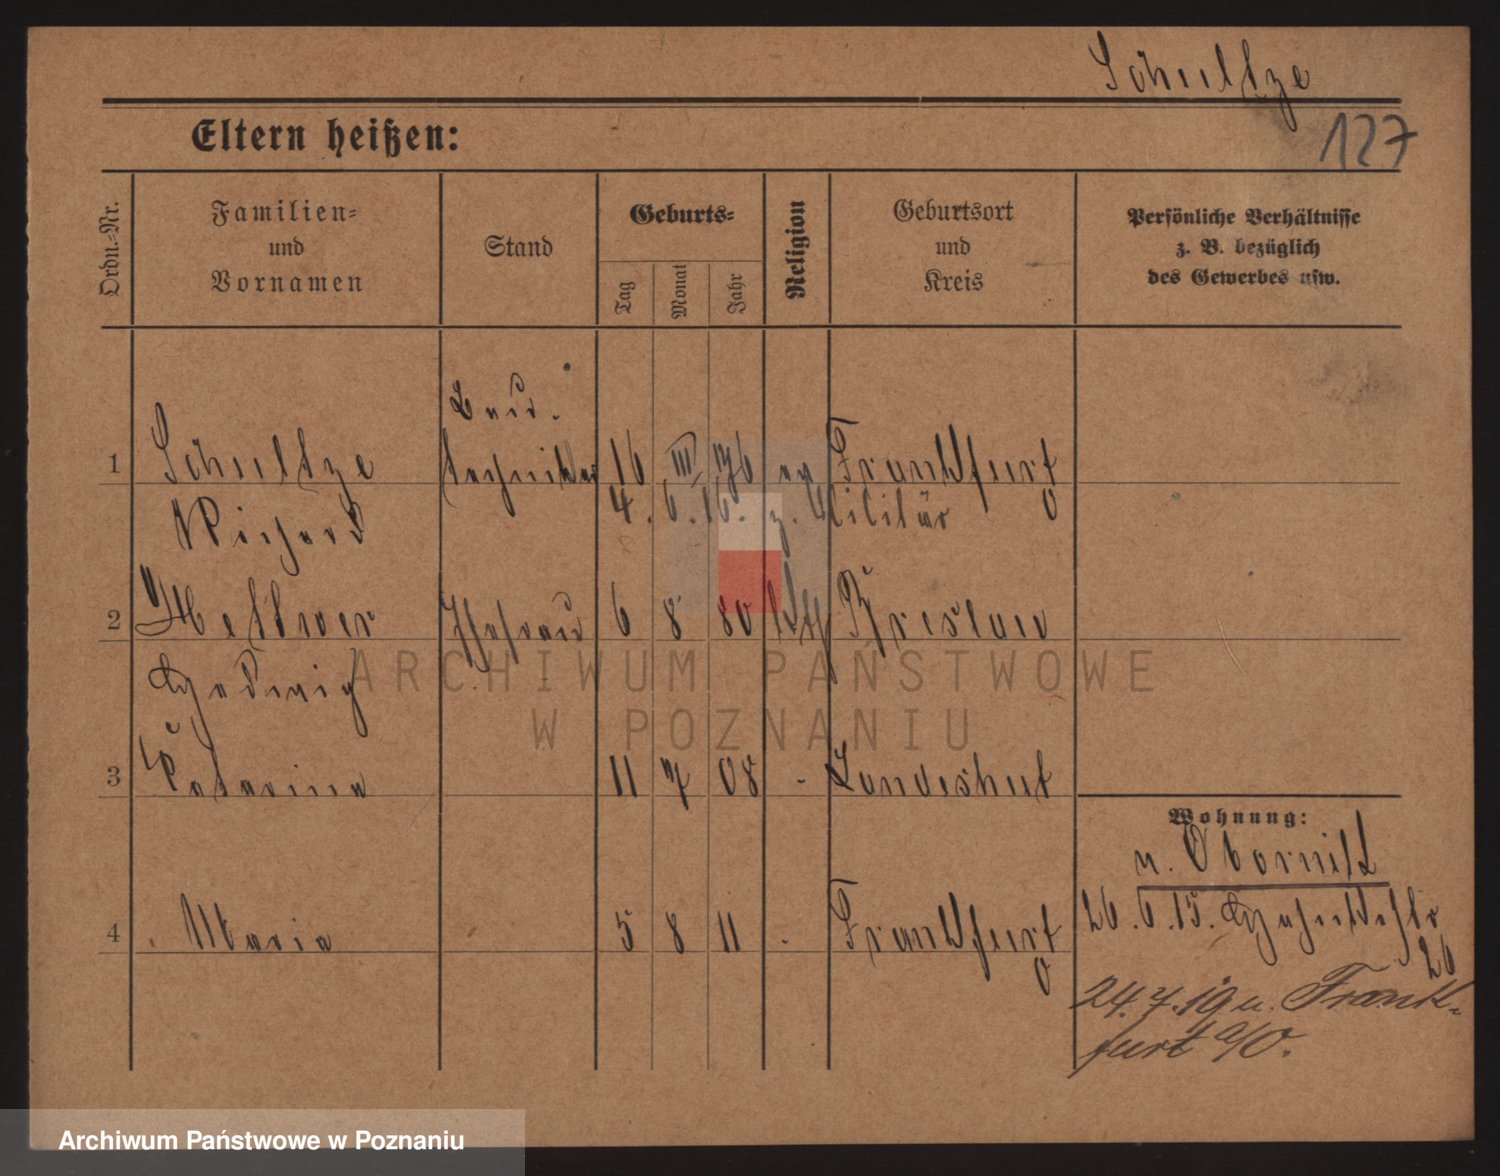 Schultze
127
Eltern heißen:
Ordn.-Nr.
Familien-
und
Vornamen
Stand
Geburts-
Tag
Monat
Jahr
Religion
Geburtsort
und
Kreis
Persönliche Verhältnisse
z. B. bezüglich
des Gewerbes usw.
Bau-
1 Schultze techniker 16 III 76 ev Frankfurt
Richard 4. 6. 16. z. Militär O
2 Mettner Ehefrau 6 8 80 kth Breslau
Hedwig
3 Katarina 11 7 08 - Landeshut
4 Maria 5 8 11 - Frankfurt
O
Wohnung:
n. Obornik
26.6.15.
26
24.7.19 n. Frank-
furt a/O.
ARCHIWUM PAŃSTWOWE
W POZNANIU
Archiwum Państwowe w Poznaniu